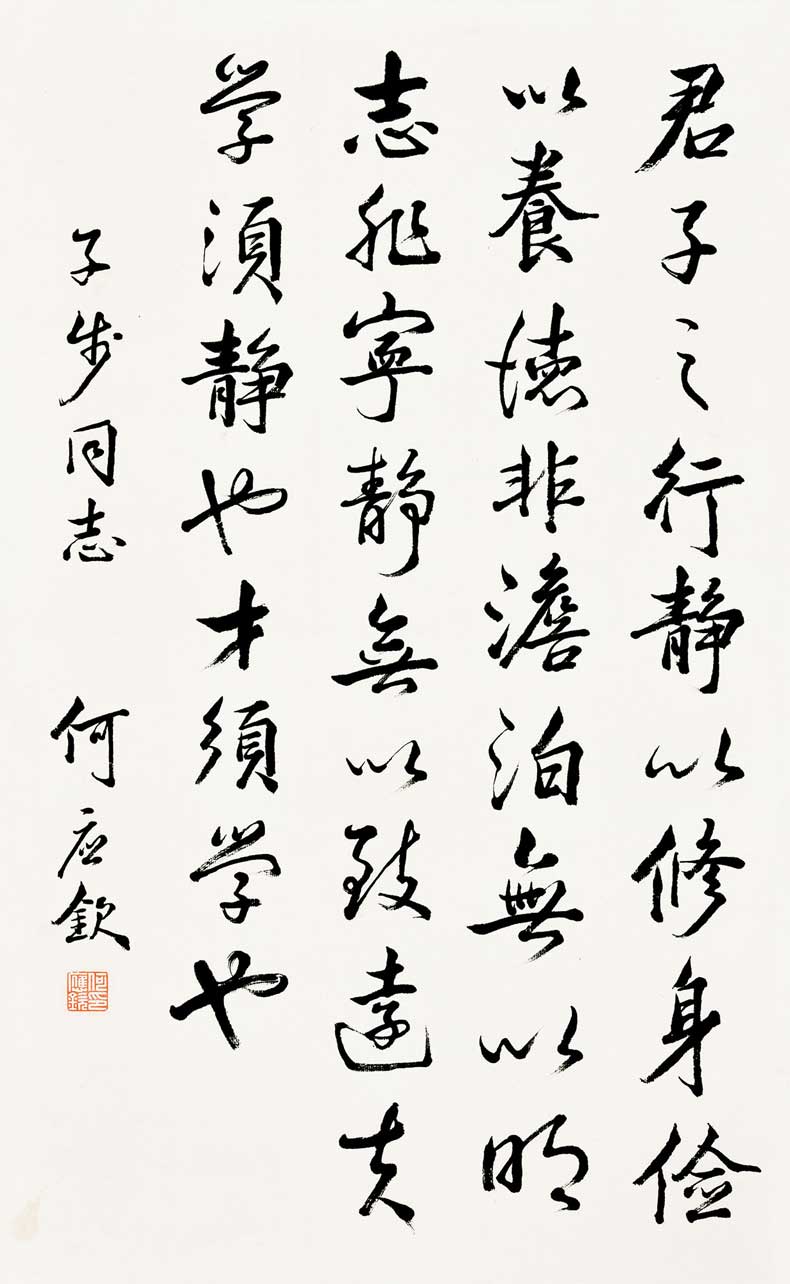 君子之行静以修身儉
以養德非澹泊無以明
志非寧静無以致遠夫
学須静也才須学也
子步同志 何应欽
何印應欽